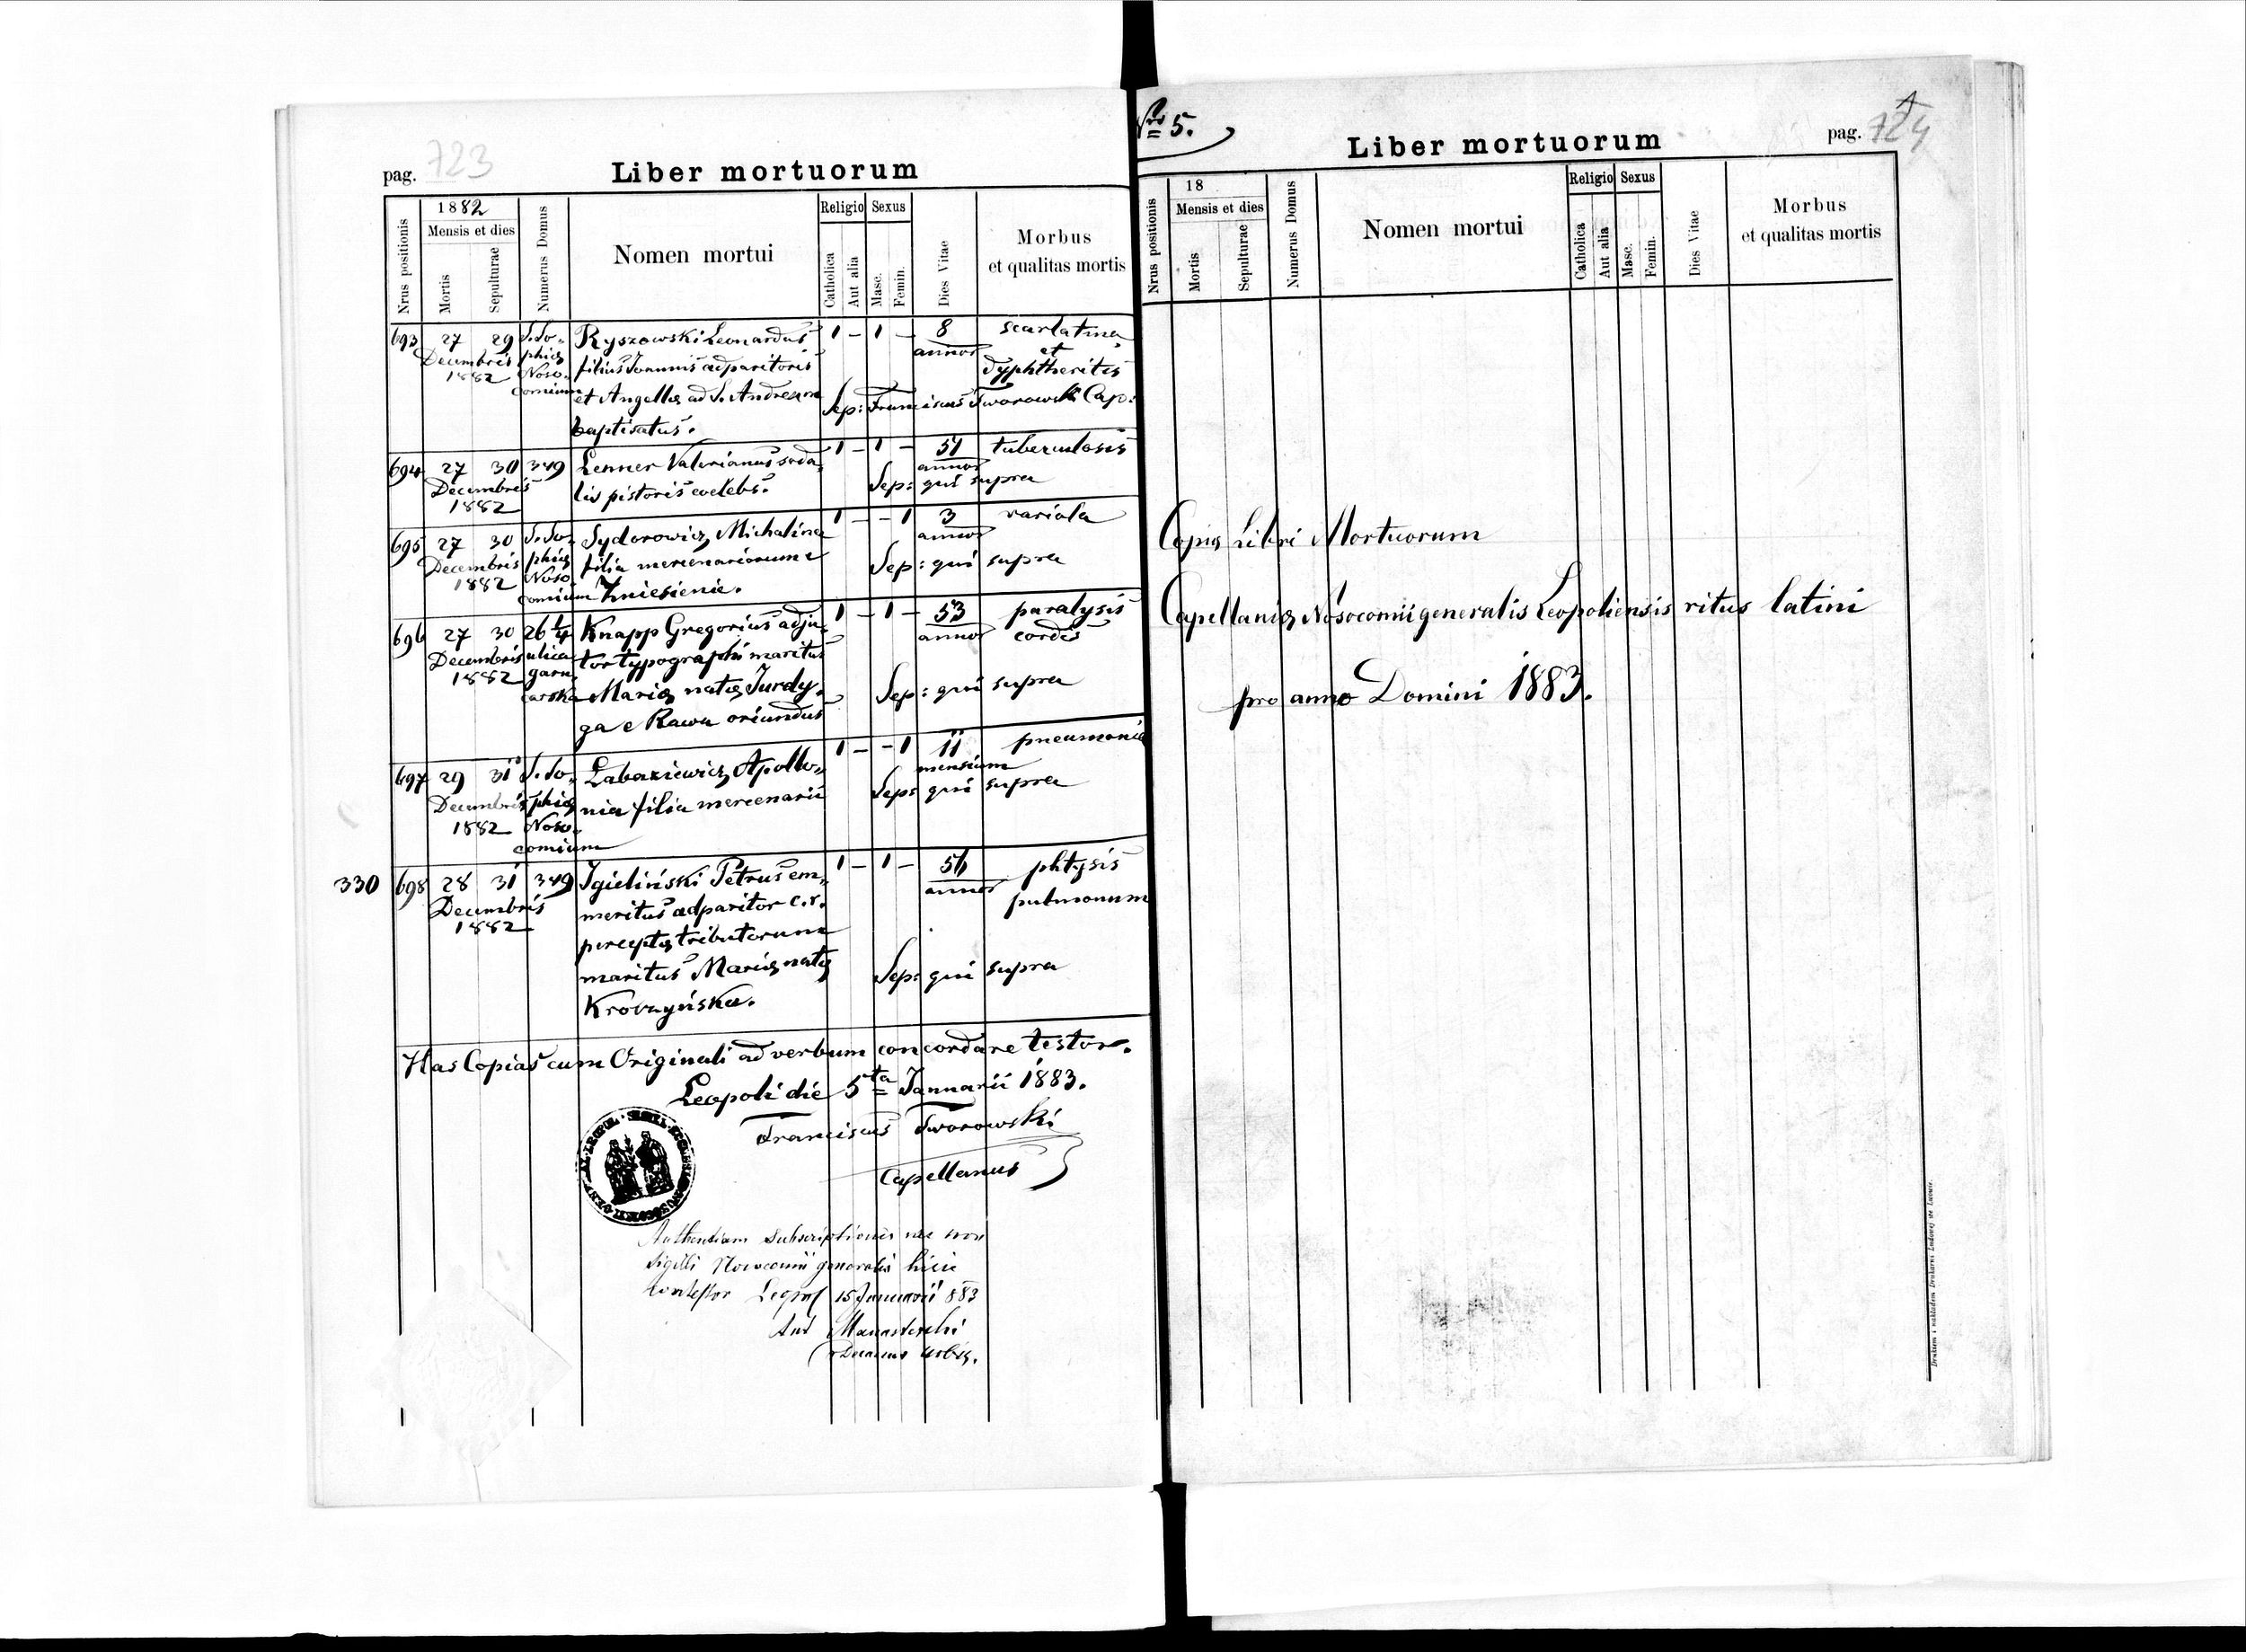 pag. 723
Liber mortuorum
Nrus positionis
1882
Mensis et dies
Mortis
Sepulturae
Numerus Domus
Nomen mortui
Religio
Catholica
Aut alia
Sexus
Masc.
Femin.
Dies Vitae
Morbus
et qualitas mortis
693 27 29 S. So- Ryszowski Leonardus 1 – 1 – 8 scarlatina
Decembris phiæ filius Joannis adparitoris annor et
1882 Noso- et Angellæ ad S. Andream dyphtheritis
comium baptisatus. Sep: Franciscus Tworowski Cap:
694 27 30 349 Lenner Valerianus soda- 1 – 1 – 51 tuberculosis
Decembris lis pistoris coelebs. annor
1882 Sep: qui supra
695 27 30 S. So- Sydorowicz Michalina 1 – – 1 3 variola
Decembris phiæ filia mercenariorum e annor
1882 Noso- Zniesienie. Sep: qui supra
comium
696 27 30 26 1/4 Knapp Gregorius adju- 1 – 1 – 53 paralysis
Decembris ulica tor typographi maritus annor cordis
1882 garn- Mariæ natæ Jurdy- Sep: qui supra
carska ga e Rawa oriundus
697 29 31 S. So- Łabaziewicz Apollo- 1 – – 1 11 pneumonia
Decembris phiæ nia filia mercenarii mensium
1882 Noso- Sep: qui supra
comium
330 698 28 31 349 Igieliński Petrus em- 1 – 1 – 56 phtysis
Decembris meritus adparitor c. r. annor pulmonum
1882 perceptæ tributorum
maritus Mariæ natæ Sep: qui supra
Krovzyńska.
Has Copias cum Originali ad verbum concordare testor.
Leopoli die 5ta Januarii 1883.
Franciscus Tworowski
Capellanus
subscriptionis nec non
sigilli Nosocomii generalis hisce
contestor Leopol 15 Januarii 883
Decanus urbis.
Nro 5.
Liber mortuorum
pag. 724
Nrus positionis
18
Mensis et dies
Mortis
Sepulturae
Numerus Domus
Nomen mortui
Religio
Catholica
Aut alia
Sexus
Masc.
Femin.
Dies Vitae
Morbus
et qualitas mortis
Copia Libri Mortuorum
Capellaniæ Nosocomii generalis Leopoliensis ritus latini
pro anno Domini 1883.
Drukiem i nakładem Drukarni Ludowej we Lwowie.